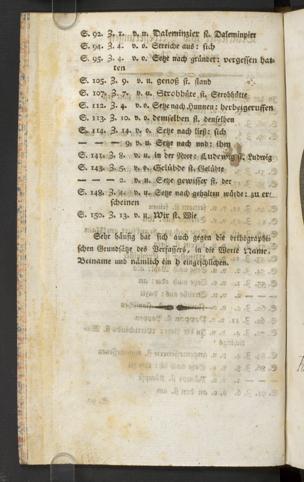 S. 92. Z. 1. v. u. Daleminzier st. Daleminpier
S. 94. Z. 4. v. o. Streiche aus: sich
S. 95. Z. 4. v. o. Setze nach gründer: vergessen hat-
ten
S. 105. Z. 9. v. u. genoß st. stand
S. 107. Z. 7. v. u. Strohhüte st. Strohhütte
S. 112. Z. 4. v. o. Setze nach Hunnen: herbeigeruffen
S. 113. Z. 10. v. o. demselben st. denselben
S. 114. Z. 14. v. o. Setze nach ließ: sich
— — — 9. v. u. Setze nach und: ihm
S. 141. Z. 8. v. u. in der Note: Ludewig st. Ludwig
S. 143. Z. 5. v. o. Gelübde st. Gelübte
— — — 2. v. u. Setze gewisser st. der
S. 148. Z. v. u. Setze nach gehalten würde: zu er-
scheinen
S. 150. Z. 13. v. u. Wir st. Wie
Sehr häufig hat sich auch gegen die orthographi-
schen Grundsätze des Verfassers, in die Worte Name,
Beiname und nämlich ein h eingeschlichen.